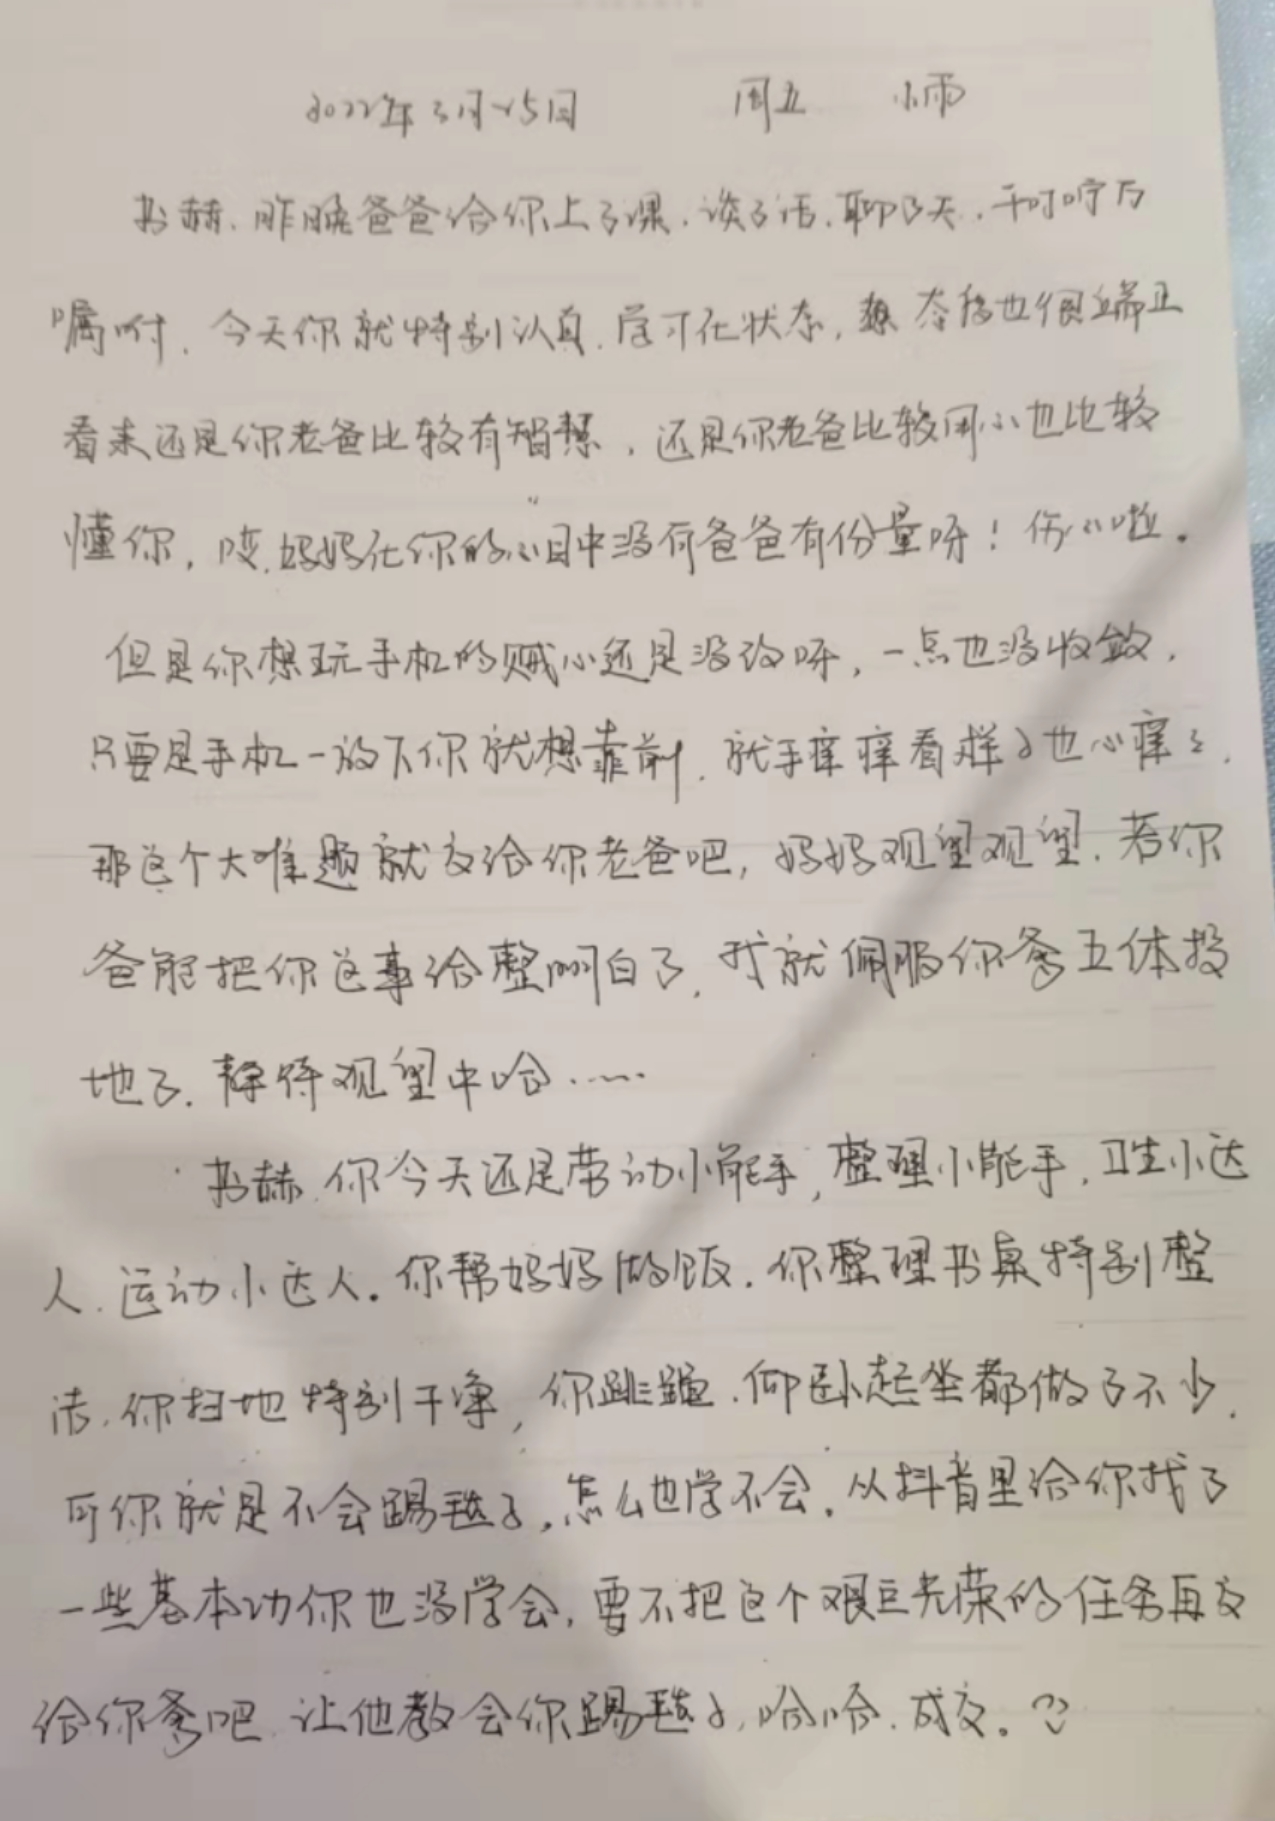 2022年3月25日 周五 小雨
书赫、昨晚爸爸给你上了课、谈了话、聊了天、千叮咛万
嘱咐、今天你就特别认真、学习在状态，态度也很端正
看来还是你老爸比较有智慧，还是你老爸比较用心也比较
懂你，哎、妈妈在你的心目中没有爸爸有份量呀！伤心啦。
但是你想玩手机的贼心还是没改呀，一点也没收敛，
只要是手机一放下你就想靠前、就手痒痒看样子也心痒痒、
那这个大难题就交给你老爸吧，妈妈观望观望、若你
爸能把你这事给整明白了，我就佩服你爹五体投
地了、静待观望中哈……
书赫、你今天还是劳动小能手，整理小能手，卫生小达
人、运动小达人。你帮妈妈做饭、你整理书桌特别整
洁、你扫地特别干净，你跳绳、仰卧起坐都做了不少、
可你就是不会踢毽子，怎么也学不会，从抖音里给你找了
一些基本功你也没学会，要不把这个艰巨光荣的任务再交
给你爹吧、让他教会你踢毽子，哈哈、成交。